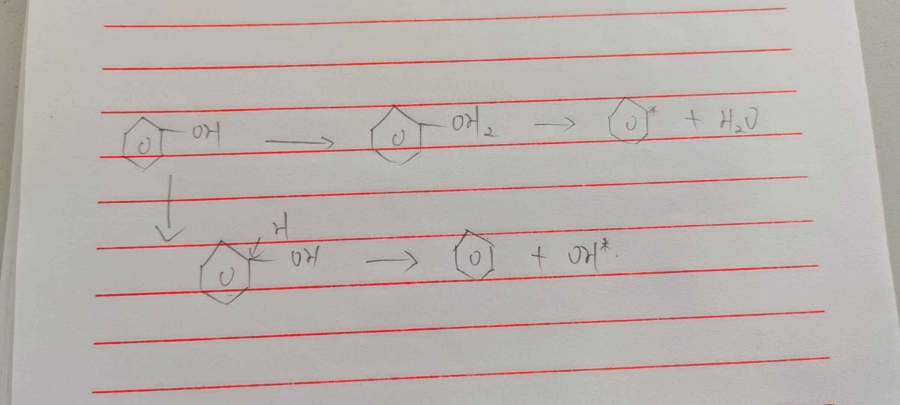 OH → OH₂ → * + H₂O
↓
H
OH → + OH*.